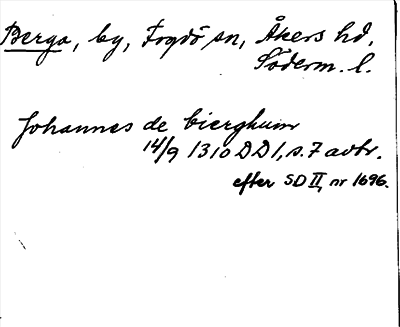 Berga, by, Fogdö sn, Åkers hd,
Söderm. l.
Johannes de bierghum
14/9 1310 DD1, s. 7 avtr.
efter SD II, nr 1696.